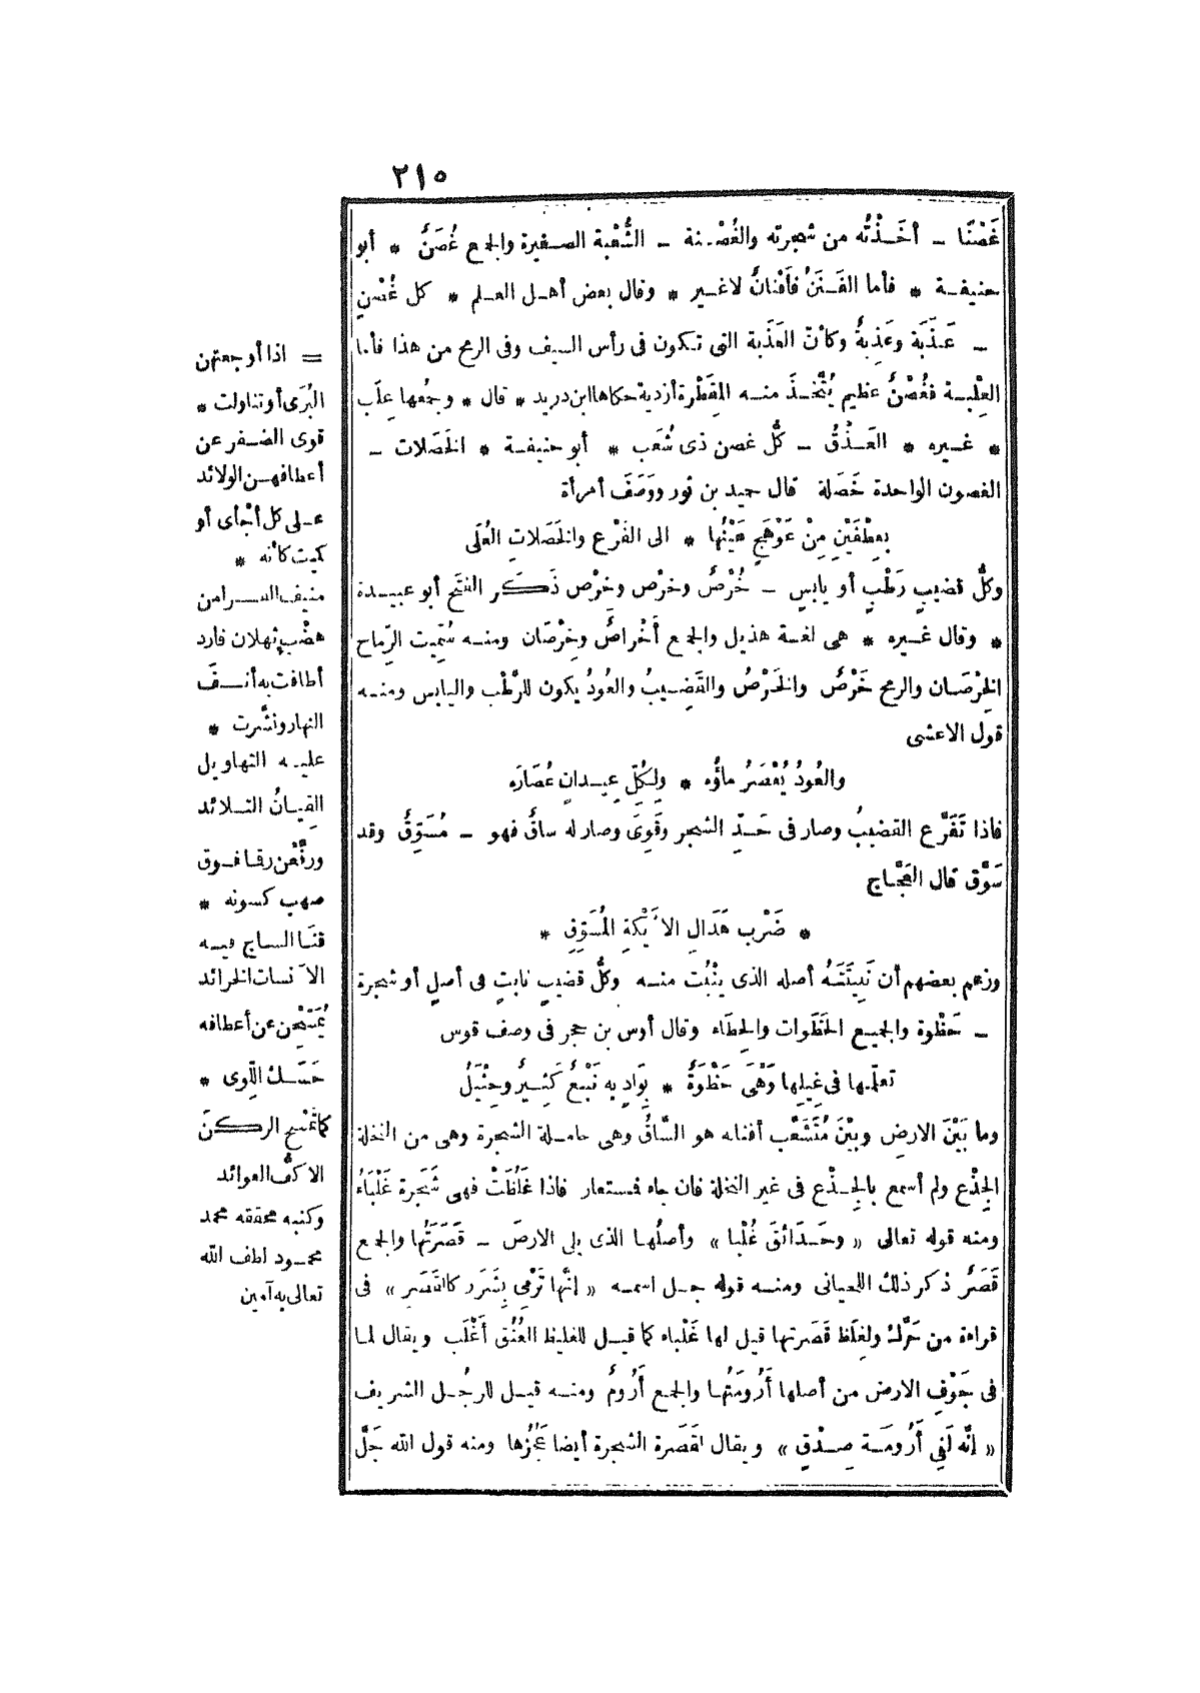 ٢١٥
غَصْنًا - أخَذْتُه من شجرته والغُصْنة - الشُّعْبة الصغيرة والجمع غُصَنٌ * أبو
حنيفة * فأما الفَنَنُ فأَفْنانٌ لاغير * وقال بعض أهل العلم * كل غُصْنٍ
- عَذَبَة وعَذِبةٌ وكأنّ العَذَبة التى تكون فى رأس السيف وفى الرمح من هذا فأما
العِلْبة فغُصْنٌ عظيم يُتَّخذَ منه المِقْطَرة أزدية حكاها ابن دريد * قال * وجمعها عِلَب
* غيره * العَذْقُ - كلُّ غصن ذى شُعَب * أبو حنيفة * الخَصَلات -
الغصون الواحدة خَصَلة قال حميد بن ثور ووَصَفَ امرأة
بِعِطْفَيْنِ مِنْ عَوْهَجٍ هَيْنُها * الى الفَرْع والخَصَلاتِ العُلَى
وكلُّ قضيبٍ رَطْبٍ أو يابس - خُرْصٌ وخِرْص وخَرْص ذَكَر الفتح أبو عبيدة
* وقال غيره * هى لغة هذيل والجمع أَخْراصٌ وخِرْصَان ومنه سُمِّيت الرِّماح
الخِرْصَان والرمح خَرْصٌ والخَرْصُ والقَضِيبُ والعُودُ يكون للرَّطْب واليابس ومنه
قول الاعشى
والعُودُ يُعْصَرُ ماؤُه * ولِكُلِّ عِيدانٍ عُصَارَه
فاذا تَفَرَّع القضيبُ وصار فى حَدِّ الشجر وقَوِىَ وصار له ساقٌ فهو - مُسَوِّقٌ وقد
سَوَّق قال العَجَّاج
* ضَرْب هَدَالِ الأَيْكةِ المُسَوِّقِ *
وزعم بعضهم أن نَبِيتَتَهُ أصله الذى ينْبُت منه وكلُّ قضيبٍ نابتٍ فى أصلٍ أو شجرة
- حَظْوة والجميع الحَظَوات والحِظَاء وقال أوس بن حجر فى وصف قوس
تعلَّمها فى غِيلِها وَهْىَ حَظْوَةٌ * بِوَادٍ به نَبْعٌ كَثِيرٌ وحِثْيَلُ
وما بَيْنَ الارضِ وبيْنَ مُتَشَعَّب أفنانه هو السَّاقُ وهى حاملة الشجرة وهى من النخلة
الجِذْع ولم أسمع بالجِذْع فى غير النخلة فان جاء فمستعار فاذا غَلُظَتْ فهى شَجَرة غَلْبَاءُ
ومنه قوله تعالى « وحَدَائقَ غُلْبا » وأصلُها الذى يلى الارضَ - قَصَرَتُها والجمع
قَصَرٌ ذكر ذلك اللحيانى ومنه قوله جل اسمه « انَّها تَرْمِى بِشَرَر كالقَصَر » فى
قراءة من حَرَّك ولغِلَظ قَصَرتها قيل لها غَلْباء كما قيل للغليظ العُنُق أَغْلَب ويقال لما
فى جَوْفِ الارض من أصلها أَرُومَتُها والجمع أَرُومٌ ومنه قيل للرجُل الشريف
« انَّه لَفِى أَرُومَة صِدْقٍ » ويقال لقَصَرة الشجرة أيضا عَجُزُها ومنه قول الله جَلَّ
= اذا أوجعتهن
البُرَى أو تناولت *
قوى الضفر عن
أعطافهن الولائد
على كل أجْأى أو
كميت كأنه *
منيف السرا من
هضْب ثهلان فارد
أطافت به أنفَ
النهار ونشَّرت *
عليه التهاويل
القِيانُ التلائد
ورفَّعن رقما فوق
صهب كسونه *
قنَا الساج فيه
الآنسات الخرائد
يُمَسِّحْن عن أعطافه
حَسَك اللّوى *
كما تَمْسح الركنَ
الاكفُّ العوائد
وكتبه محققه محمد
محمود لطف الله
تعالى به آمين